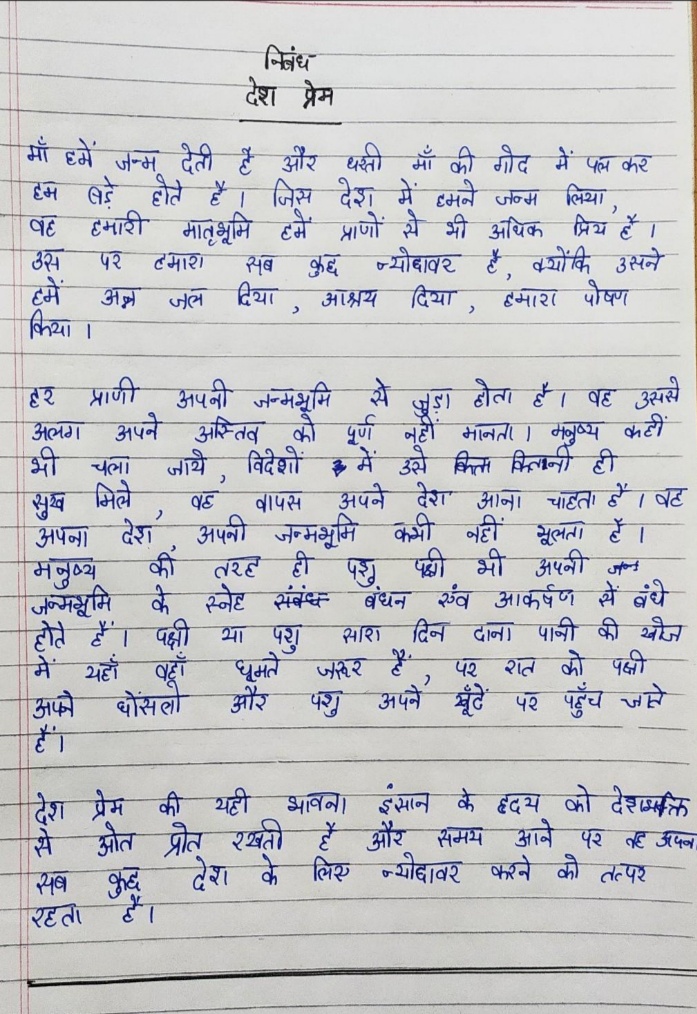 निबंध
देश प्रेम
माँ हमें जन्म देती है और धरती माँ की गोद में पल कर
हम बड़े होते है । जिस देश में हमने जन्म लिया,
वह हमारी मातृभूमि हमें प्राणों से भी अधिक प्रिय है ।
उस पर हमारा सब कुछ न्योछावर है, क्योंकि उसने
हमें अन्न जल दिया, आश्रय दिया, हमारा पोषण
किया ।
हर प्राणी अपनी जन्मभूमि से जुड़ा होता है । वह उससे
अलग अपने अस्तिव को पूर्ण नहीं मानता । मनुष्य कहीं
भी चला जाये, विदेशों में उसे कितनी ही
सुख मिले, वह वापस अपने देश आना चाहता है । वह
अपना देश, अपनी जन्मभूमि कभी नहीं भूलता है ।
मनुष्य की तरह ही पशु पक्षी भी अपनी
जन्मभूमि के स्नेह संबंध बंधन एंव आकर्षण सें बंधे
होते हैं । पक्षी या पशु सारा दिन दाना पानी की खोज
में यहाँ वहाँ घूमते जरूर हैं, पर रात को पक्षी
अपने घोंसलो और पशु अपने खूँटें पर पहुँच जाते
हैं ।
देश प्रेम की यही भावना इंसान के हृदय को देशभक्ति
से ओत प्रोत रखती है और समय आने पर वह अपना
सब कुछ देश के लिए न्योछावर करने को तत्पर
रहता है ।